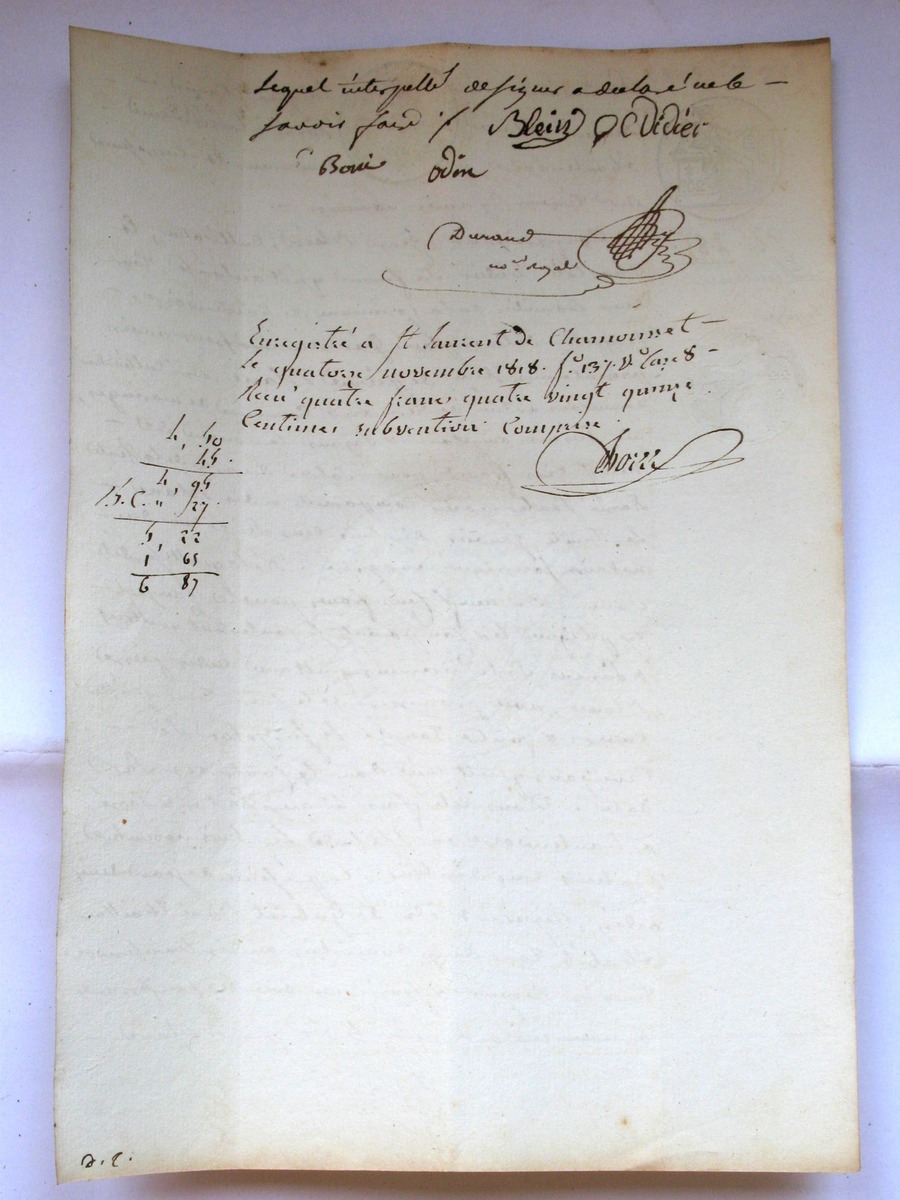 Lequel interpellé de signer a declaré ne le
savoir faire ./. Blein Didier
Boni odin
Durand
no.re royal
Enregistré a St laurent de Chamousset
le quatorze novembre 1818. fo. 137. Vo. Case 8
Recu quatre francs quatre vingt quinze
Centimes subvention Comprise.
4, 50
45.
4, 95
15. C. " 27.
5, 22
1 65
6 87
D. C.